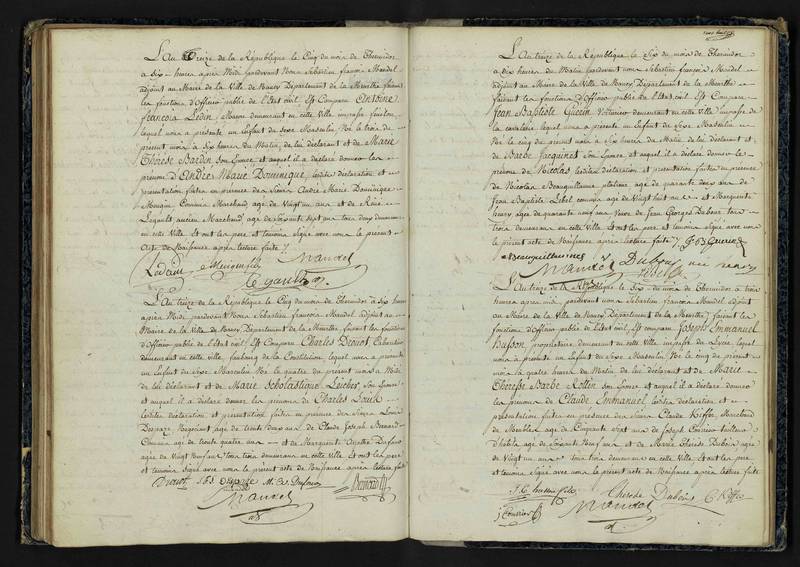 L'An Treize de la République le Cinq du mois de Thermidor
à Six heures après Midi pardevant Nous Sébastien françois Mandel
adjoint au Maire de la Ville de Nancy Département de la Meurthe faisant
les fonctions d'Officier public de l'Etat civil, Est Comparu Antoine
françois Ledin, Maçon demeurant en cette Ville,
lequel nous a présenté un Enfant du Sexe Masculin Né le trois du
présent mois à Six heures du Matin, de lui déclarant et de Marie
Thérèse Bardin Son Epouse, et auquel il a déclaré donner les
prénoms d'André Marie Dominique, lesdites déclaration et
présentation faites en présence des Sieurs André Marie Dominique
Mougin Commis Marchand agé de Vingt un ans et de René
Legault ancien Marchand, agé de Soixante Sept ans tous deux demeurans
en cette Ville Et ont les père et témoins Signé avec nous le présent
Acte de Naissance après lecture faite
Mandel
Legault
L'An treize de la République le Cinq du mois de Thermidor à Six heures
après Midi pardevant Nous Sébastien françois Mandel adjoint au
Maire de la Ville de Nancy, Département de la Meurthe faisant les fonctions
d'Officier public de l'Etat civil, Est Comparu Charles Drouot
demeurant en cette Ville, faubourg de la Constitution, lequel nous a présenté
un Enfant du Sexe Masculin Né le quatre du présent mois à Midi
de lui déclarant et de Marie Scholastique Leicher, Son Epouse
et auquel il a déclaré donner les prénoms de Charles Louis
lesdites déclaration et présentation faites en présence des Sieurs Louis
Despaze Négociant agé de trente deux ans, de Claude Joseph Bernard
Commis agé de trente quatre ans et de Marguerite
agée de Vingt Neuf ans, tous trois demeurans en cette Ville Et ont les père
et témoins Signé avec nous le présent acte de Naissance après lecture faite
Drouot
Mandel
L'An treize de la République le Six du mois de Thermidor
à Six heures du Matin pardevant Nous Sébastien françois Mandel
adjoint au Maire de la Ville de Nancy Département de la Meurthe
faisant les fonctions d'Officier public de l'Etat civil, Est Comparu
Jean Baptiste Guerin Voiturier demeurant en cette Ville impasse de
la cavalerie lequel nous a présenté un Enfant de Sexe Masculin
Né le cinq du présent mois à Six heures du Matin de lui déclarant et
de Barbe Jacquinet Son Epouse et auquel il a déclaré donner le
prénom de Nicolas lesdites déclaration et présentation faites en présence
de Nicolas Beauguillaume platrier agé de quarante deux ans de
Jean Baptiste Lebel commis agé de Vingt huit ans et Marguerite
henry agée de quarante neuf ans Veuve de Jean Georges Dubois tous
trois demeurans en cette Ville Et ont les père et témoins Signé avec nous
le présent acte de Naissance après lecture faite
J B Guerin
Mandel
Dubois née henry
L'An treize de la République le Six du mois de Thermidor à trois
heures après midi pardevant nous Sébastien françois Mandel adjoint
au Maire de la Ville de Nancy Département de la Meurthe faisant les
fonctions d'Officier public de l'Etat civil, Est comparu Joseph Emmanuel
Propriétaire demeurant en cette Ville impasse du Lycée lequel
nous a présenté un Enfant du Sexe Masculin Né le cinq du présent
mois à quatre heures du Matin de lui déclarant et de Marie
Therese Barbe Son Epouse et auquel il a déclaré donner
les prénoms de Claude Emmanuel lesdites déclaration et
présentation faites en présence des Sieurs Claude Kiffer Marchand
de Meubles agé de Cinquante Sept ans de Joseph tailleur
d'habits agé de Soixante Neuf ans et de Marie Thérèse Dubois agée
de Vingt un ans tous trois demeurans en cette Ville Et ont les père
et témoins Signé avec nous le présent acte de Naissance après lecture faite
Therese Dubois
C Kiffer
Mandel